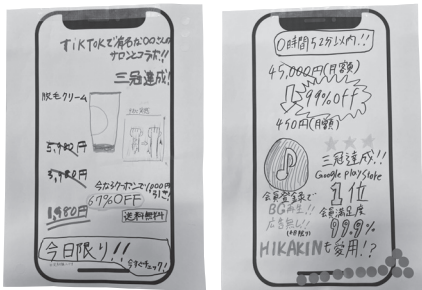 TiKTOKで有名な〇〇さんの
サロンとコラボ!!
三冠達成!
脱毛クリーム
5,980円
3,980円
今ならクーポンで1000円引き!
67%OFF
1,980円
送料無料
今日限り!!
今すぐチェック!
0時間52分以内!!
45,000円(月額)
99%OFF
450円(月額)
三冠達成!!
Google play store
1位
会員登録で
BG再生!!
広告無し!!
会員満足度
99.9%
HIKAKINも愛用!?